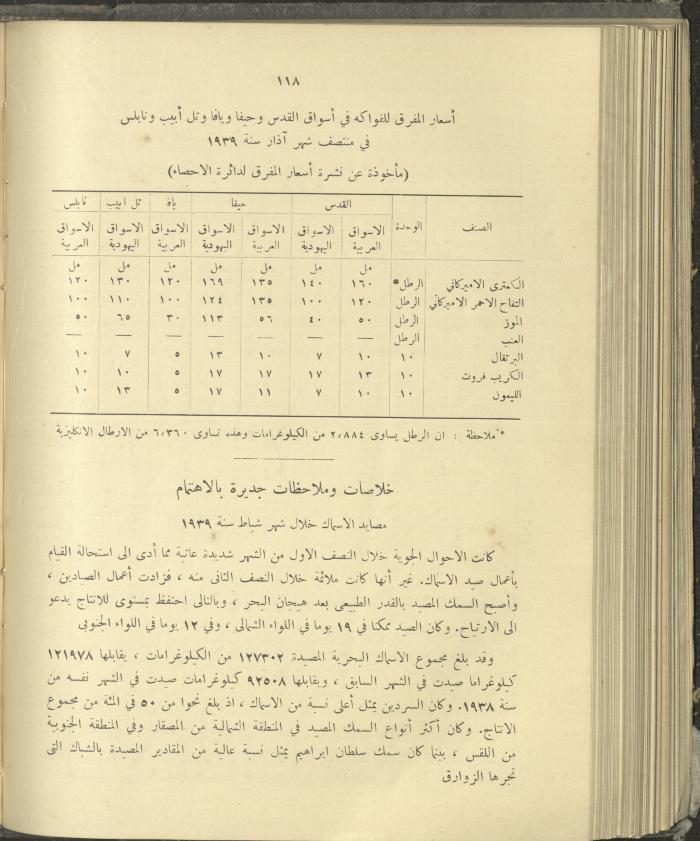 ١١٨
أسعار المفرق للفواكه في أسواق القدس وحيفا ويافا وتل أبيب ونابلس
في منتصف شهر آذار سنة ١٩٣٩
(مأخوذة عن نشرة أسعار المفرق لدائرة الاحصاء)
الصنف الوحدة القدس حيفا يافا تل ابيب نابلس
الاسواق العربية الاسواق اليهودية الاسواق العربية الاسواق اليهودية الاسواق العربية الاسواق اليهودية الاسواق العربية
مل مل مل مل مل مل مل
الكمثرى الاميركاني الرطل* ١٦٠ ١٤٠ ١٣٥ ١٦٩ ١٢٠ ١٣٠ ١٢٠
التفاح الاحمر الاميركاني الرطل ١٢٠ ١٠٠ ١٣٥ ١٢٤ ١٠٠ ١١٠ ١٠٠
الموز الرطل ٥٠ ٤٠ ٥٦ ١١٣ ٣٠ ٦٥ ٥٠
العنب الرطل — — — — — — —
البرتقال ١٠ ١٠ ٧ ١٠ ١٣ ٥ ٧ ١٠
الكريب فروت ١٠ ١٣ ١٧ ١٧ ١٧ ٥ ١٠ ١٠
الليمون ١٠ ١٠ ٧ ١١ ١٧ ٥ ١٣ ١٠
* ملاحظة : ان الرطل يساوى ٢،٨٨٤ من الكيلوغرامات وهذه تساوى ٦،٣٦٠ من الارطال الانكليزية
خلاصات وملاحظات جديرة بالاهتمام
مصايد الاسماك خلال شهر شباط سنة ١٩٣٩
كانت الاحوال الجوية خلال النصف الاول من الشهر شديدة عاتية مما أدى الى استحالة القيام
بأعمال صيد الاسماك. غير أنها كانت ملائمة خلال النصف الثانى منه ، فزادت أعمال الصيادين ،
وأصبح السمك المصيد بالقدر الطبيعى بعد هيجان البحر ، وبالتالى احتفظ بمستوى للانتاج يدعو
الى الارتياح. وكان الصيد ممكنا في ١٩ يوما في اللواء الشمالى ، وفي ١٢ يوما في اللواء الجنوبى
وقد بلغ مجموع الاسماك البحرية المصيدة ١٢٧٣٠٢ من الكيلوغرامات ، يقابلها ١٢١٩٧٨
كيلوغراما صيدت في الشهر السابق ، ويقابلها ٩٢٥٠٨ كيلوغرامات صيدت في الشهر نفسه من
سنة ١٩٣٨. وكان السردين يمثل أعلى نسبة من الاسماك ، اذ بلغ نحوا من ٥٠ في المئة من مجموع
الانتاج. وكان أكثر أنواع السمك المصيد في المنطقة الشمالية من المصقار وفي المنطقة الجنوبية
من اللقس ، بينما كان سمك سلطان ابراهيم يمثل نسبة عالية من المقادير المصيدة بالشباك التى
تجرها الزوارق